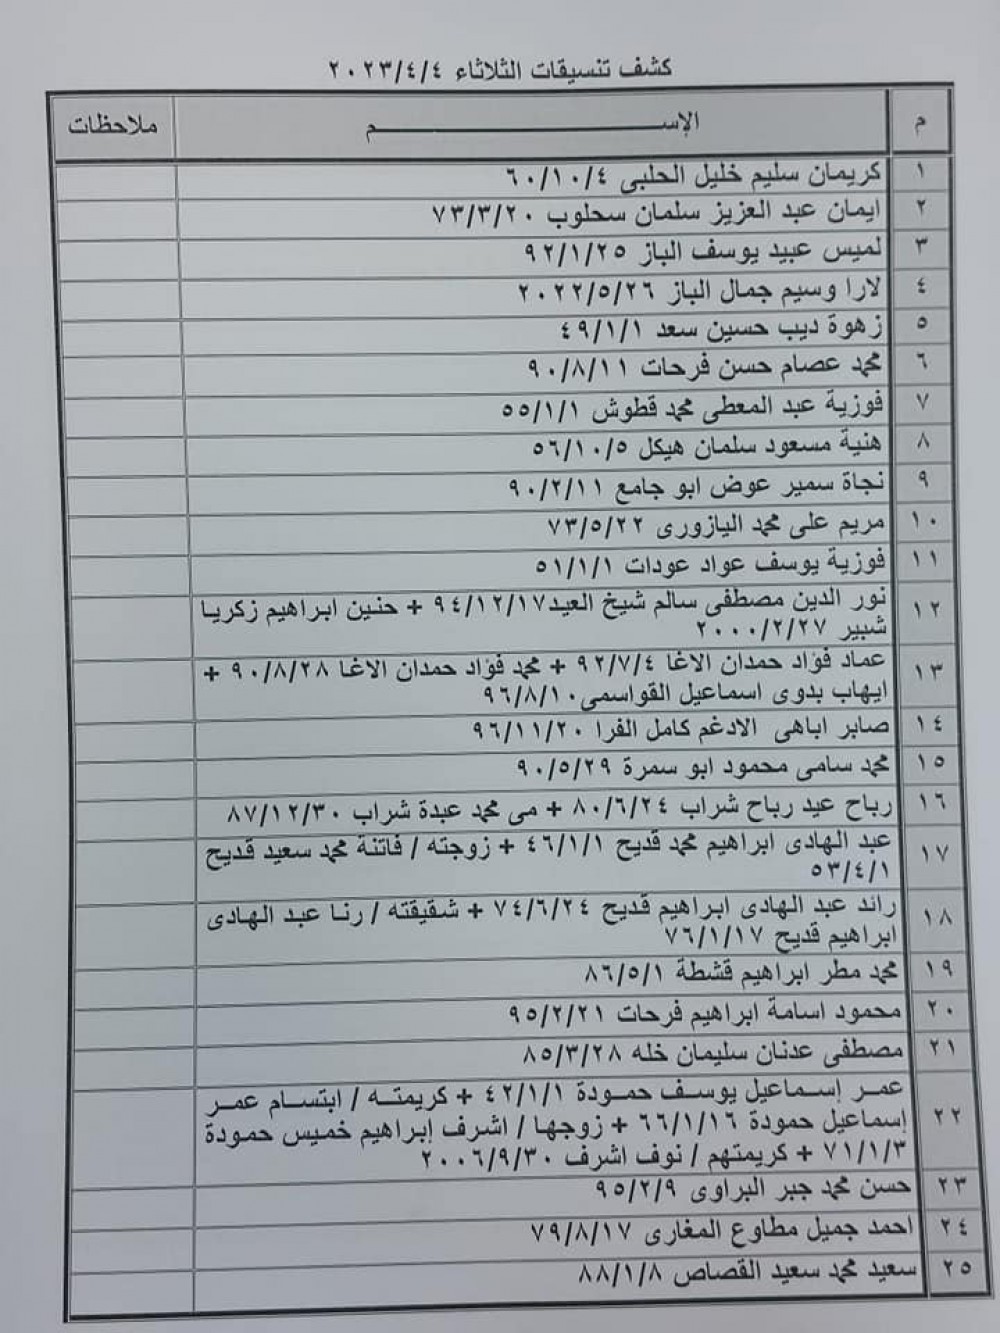 كشف تنسيقات الثلاثاء ٢٠٢٣/٤/٤
م الإســـــــــم ملاحظات
١ كريمان سليم خليل الحلبى ٦٠/١٠/٤
٢ ايمان عبد العزيز سلمان سحلوب ٧٣/٣/٢٠
٣ لميس عبيد يوسف الباز ٩٢/١/٢٥
٤ لارا وسيم جمال الباز ٢٠٢٢/٥/٢٦
٥ زهوة ديب حسين سعد ٤٩/١/١
٦ محمد عصام حسن فرحات ٩٠/٨/١١
٧ فوزية عبد المعطى محمد قطوش ٥٥/١/١
٨ هنية مسعود سلمان هيكل ٥٦/١٠/٥
٩ نجاة سمير عوض ابو جامع ٩٠/٢/١١
١٠ مريم على محمد اليازورى ٧٣/٥/٢٢
١١ فوزية يوسف عواد عودات ٥١/١/١
١٢ نور الدين مصطفى سالم شيخ العيد٩٤/١٢/١٧ + حنين ابراهيم زكريا
شبير ٢٠٠٠/٢/٢٧
١٣ عماد فؤاد حمدان الاغا ٩٢/٧/٤ + محمد فؤاد حمدان الاغا ٩٠/٨/٢٨ +
ايهاب بدوى اسماعيل القواسمى٩٦/٨/١٠
١٤ صابر اباهى الادغم كامل الفرا ٩٦/١١/٢٠
١٥ محمد سامى محمود ابو سمرة ٩٠/٥/٢٩
١٦ رباح عيد رباح شراب ٨٠/٦/٢٤ + مى محمد عبدة شراب ٨٧/١٢/٣٠
١٧ عبد الهادى ابراهيم محمد قديح ٤٦/١/١ + زوجته / فاتنة محمد سعيد قديح
٥٣/٤/١
١٨ رائد عبد الهادى ابراهيم قديح ٧٤/٦/٢٤ + شقيقته / رنا عبد الهادى
ابراهيم قديح ٧٦/١/١٧
١٩ محمد مطر ابراهيم قشطة ٨٦/٥/١
٢٠ محمود اسامة ابراهيم فرحات ٩٥/٢/٢١
٢١ مصطفى عدنان سليمان خله ٨٥/٣/٢٨
٢٢ عمر إسماعيل يوسف حمودة ٤٢/١/١ + كريمته / ابتسام عمر
إسماعيل حمودة ٦٦/١/١٦ + زوجها / اشرف إبراهيم خميس حمودة
٧١/١/٣ + كريمتهم / نوف اشرف ٢٠٠٦/٩/٣٠
٢٣ حسن محمد جبر البراوى ٩٥/٢/٩
٢٤ احمد جميل مطاوع المغارى ٧٩/٨/١٧
٢٥ سعيد محمد سعيد القصاص ٨٨/١/٨